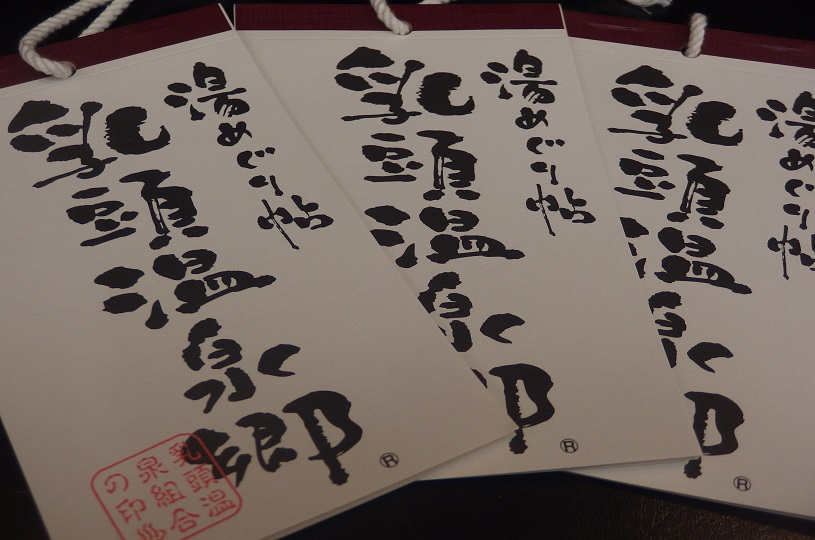 湯めぐり帖
乳頭温泉郷
®
乳頭温
泉組合
の印
湯めぐり帖
乳頭温泉郷
®
湯めぐり帖
乳頭温泉郷
®